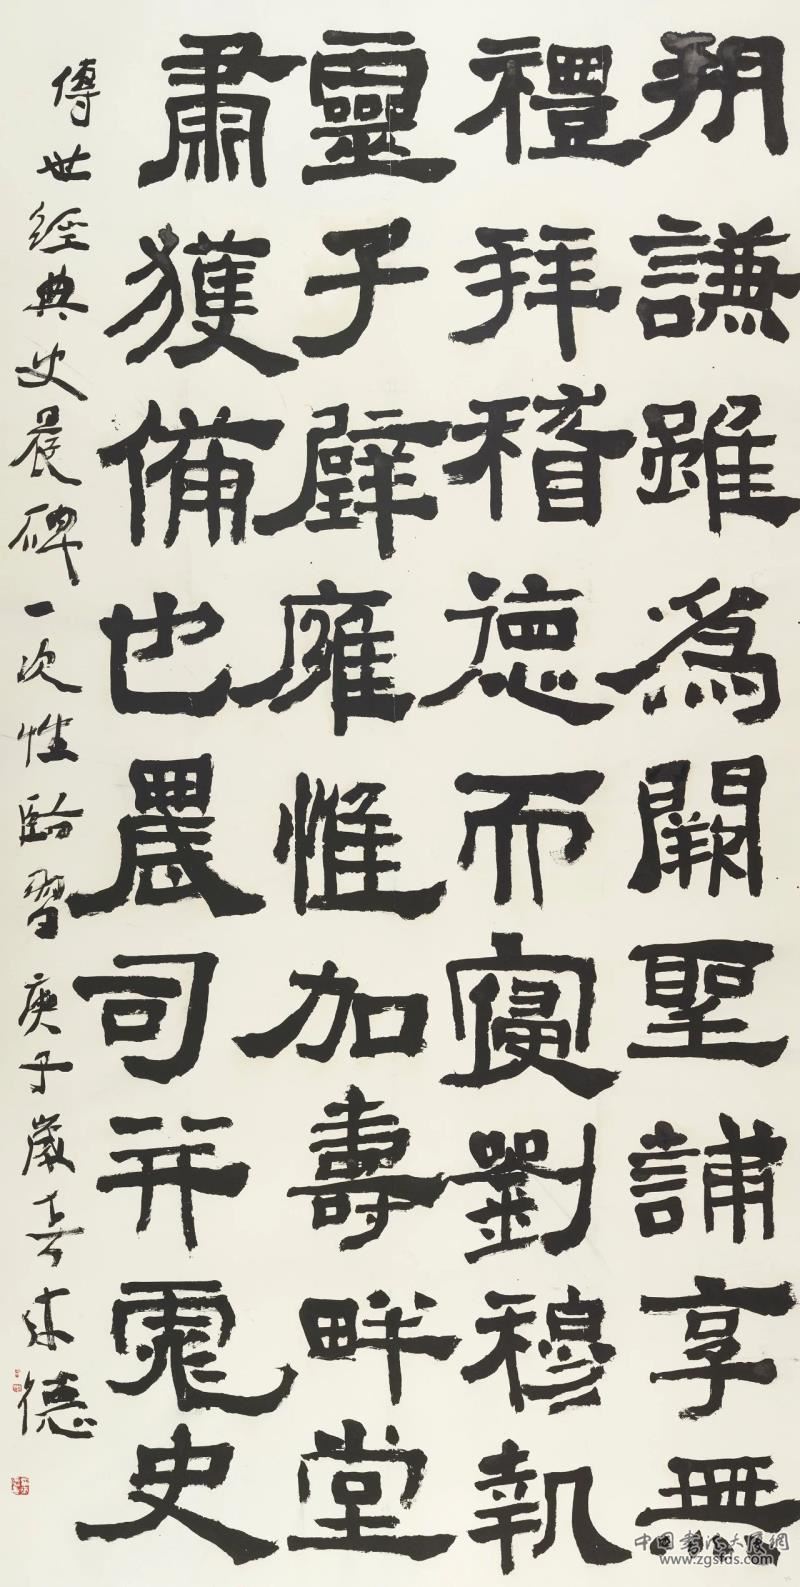 朔謙雖為闕聖誦享無
禮拜稽德而寑劉穆執
靈子辟雍惟加壽畔堂
肅獲備也農司并 史
傳世經典史晨碑一次性臨習庚子歲 來德
中国书法大展網
www.zgsfds.com